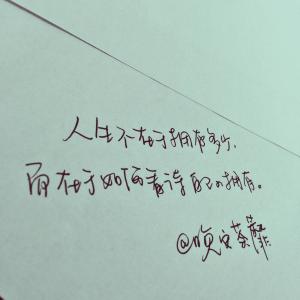 人生不在于拥有多少，
而在于如何看待自己的拥有。
@晚安荼蘼